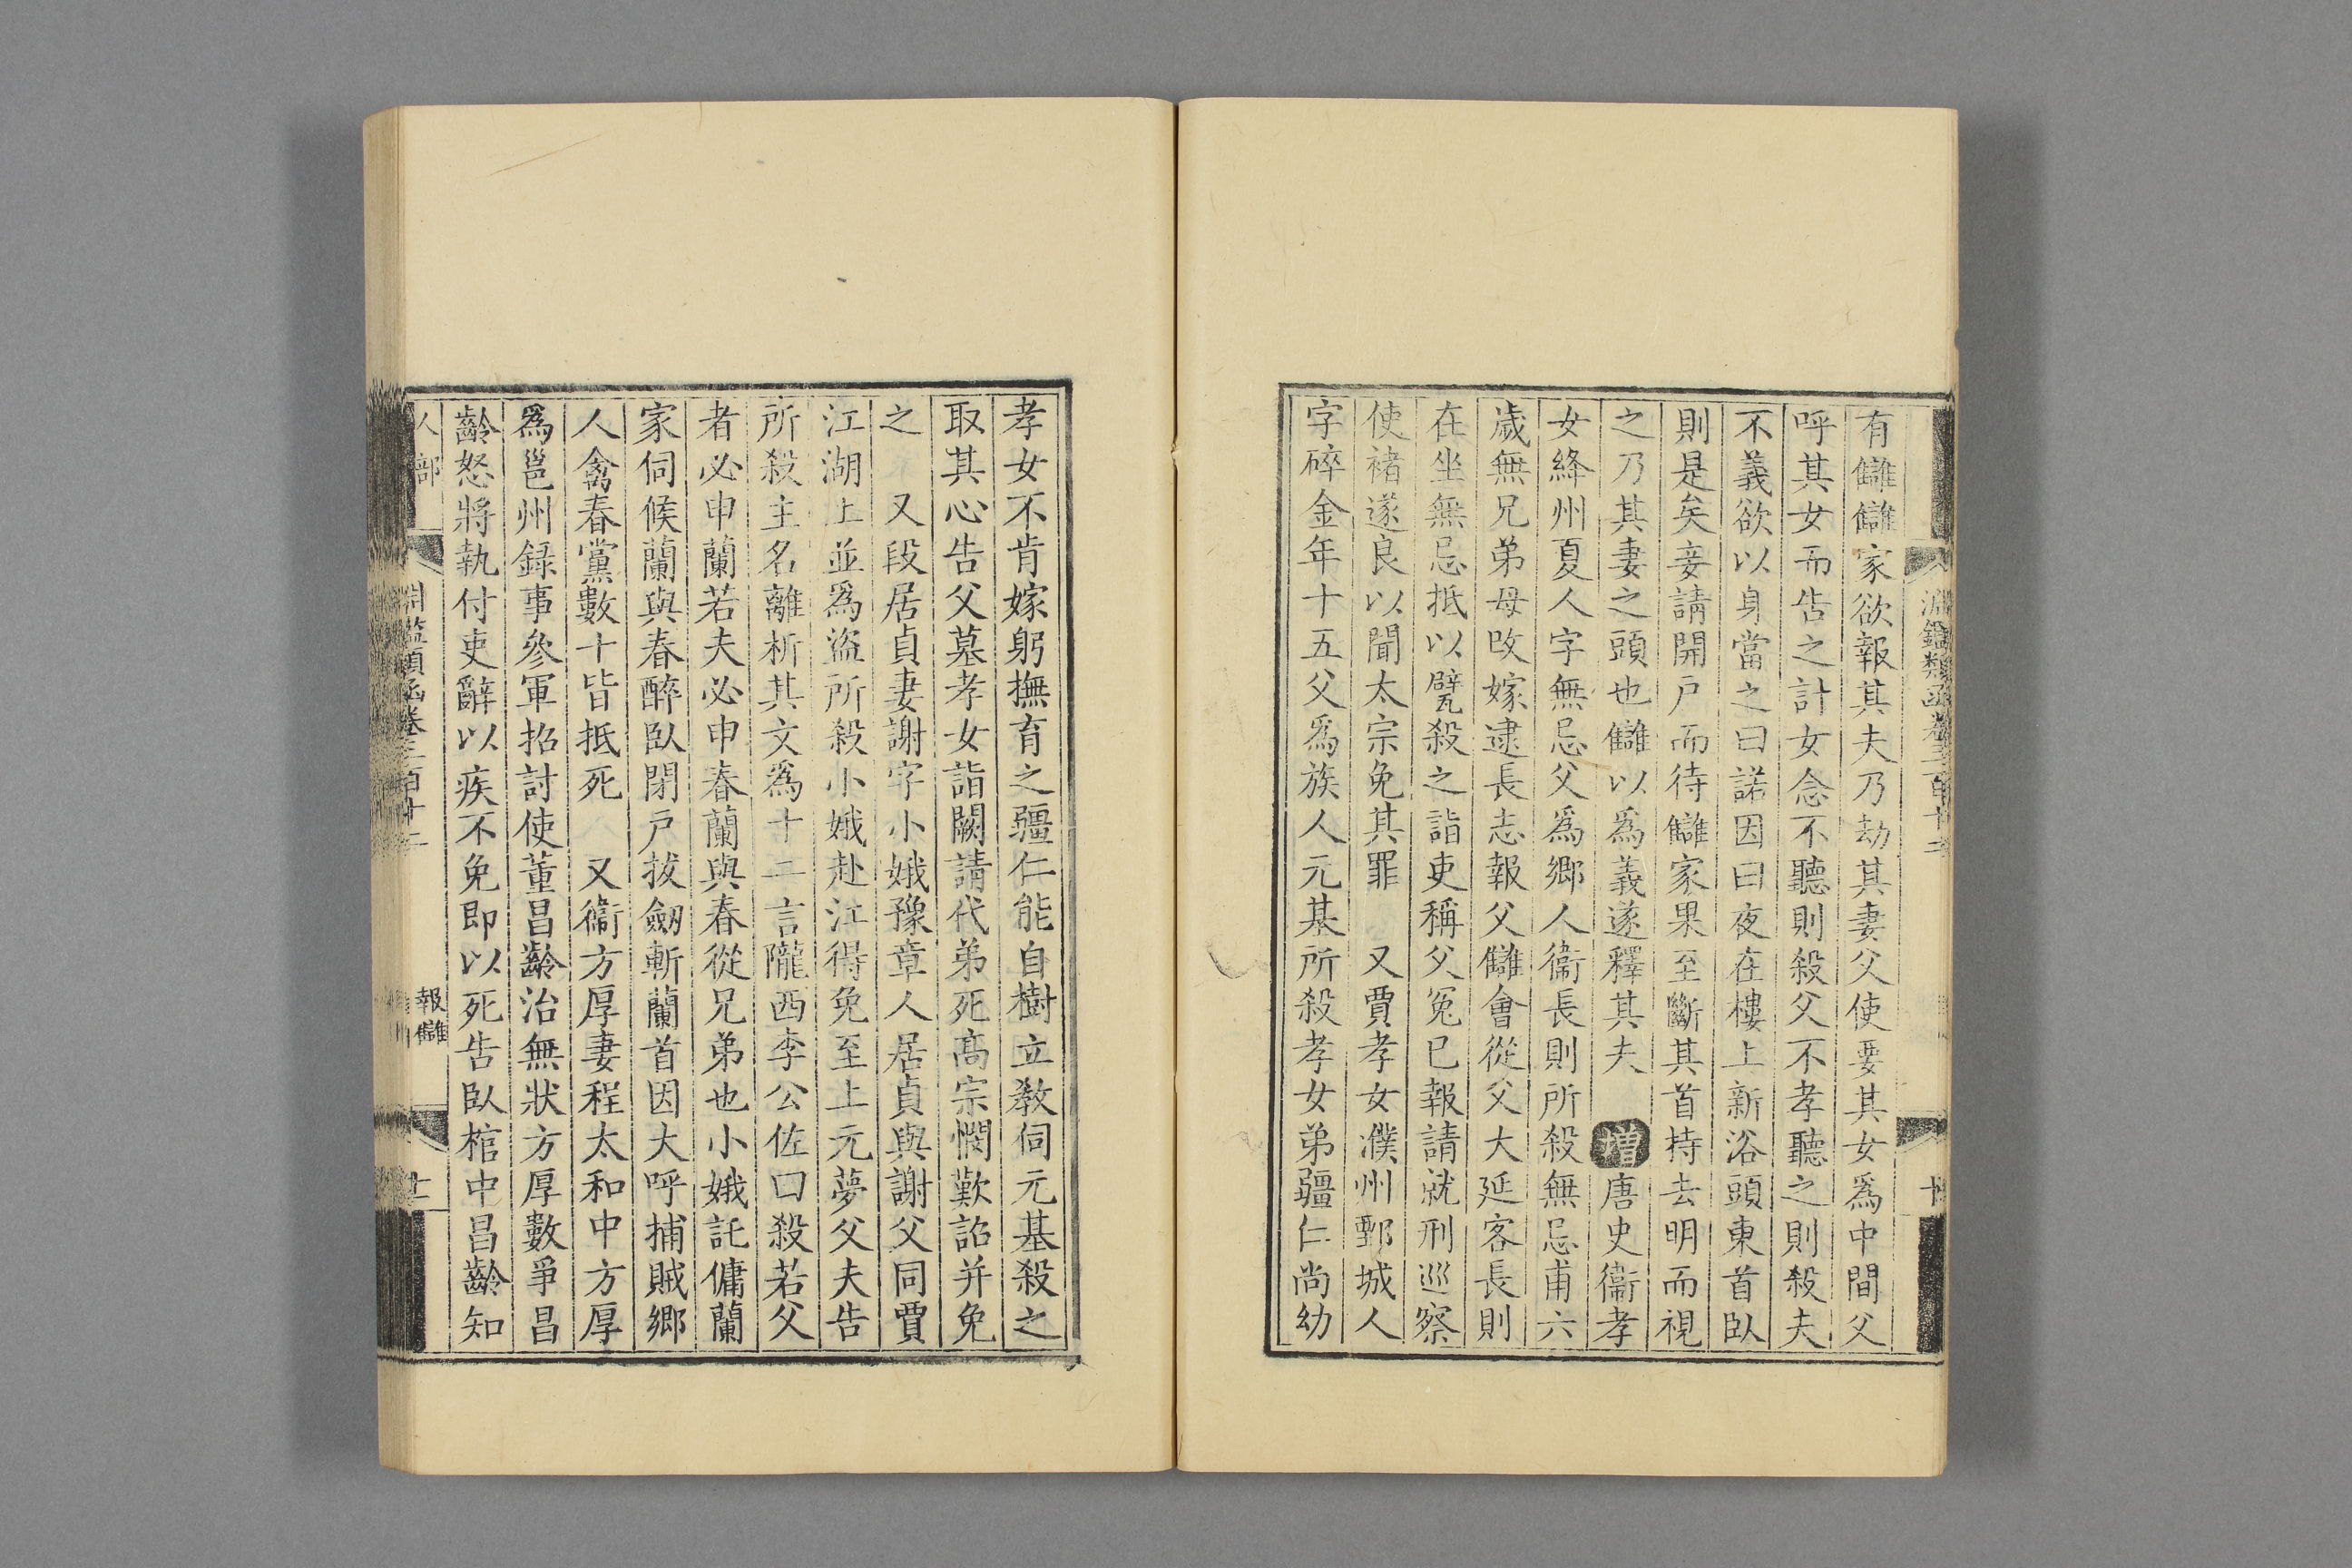 有讎讎家欲報其夫乃劫其妻父使要其女爲中間父
呼其女而告之計女念不聽則殺父不孝聽之則殺夫
不義欲以身當之曰諾因曰夜在樓上新浴頭東首臥
則是矣妾請開戸而待讎家果至斷其首持去明而視
之乃其妻之頭也讎以爲義遂釋其夫 增唐史衞孝
女絳州夏人字無忌父爲鄉人衞長則所殺無忌甫六
歲無兄弟母改嫁逮長志報父讎會從父大延客長則
在坐無忌抵以甓殺之詣吏稱父冤已報請就刑巡察
使褚遂良以聞太宗免其罪 又賈孝女濮州鄄城人
字碎金年十五父爲族人元基所殺孝女弟彊仁尚幼
孝女不肯嫁躬撫育之彊仁能自樹立教伺元基殺之
取其心告父墓孝女詣闕請代弟死高宗憫歎詔并免
之 又段居貞妻謝字小娥豫章人居貞與謝父同賈
江湖上並爲盜所殺小娥赴江得免至上元夢父夫告
所殺主名離析其文爲十二言隴西李公佐曰殺若父
者必申蘭若夫必申春蘭與春從兄弟也小娥託傭蘭
家伺候蘭與春醉臥閉戸拔劒斬蘭首因大呼捕賊鄉
人禽春黨數十皆抵死 又衞方厚妻程太和中方厚
爲邕州録事參軍招討使董昌齡治無狀方厚數爭昌
齡怒將執付吏辭以疾不免即以死告臥棺中昌齡知
人部
淵鑑類函卷三百十二
報讎
十一